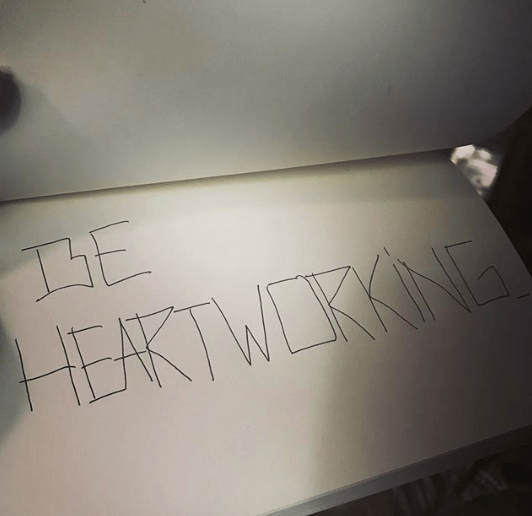 BE
HEARTWORKiNG_